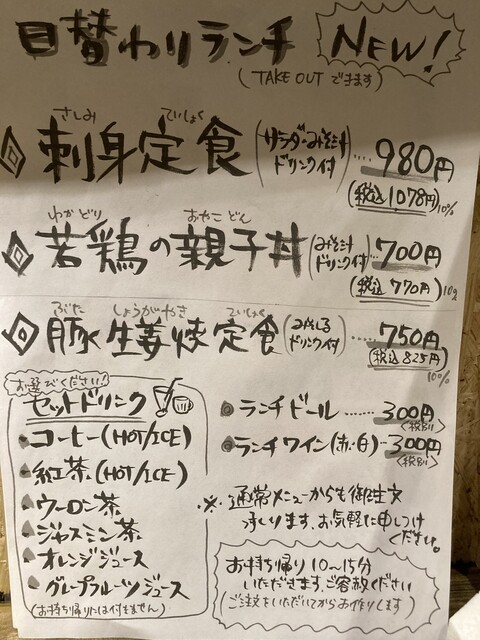 日替わりランチ NEW!
(TAKE OUT できます)
さしみ ていしょく
刺身定食 (サラダ・みそ汁 ドリンク付) ‥‥ 980円
(税込 1078円) 10%
わかどり おやこどん
若鶏の親子丼 (みそ汁 ドリンク付) ‥‥ 700円
(税込 770円) 10%
ぶた しょうがやき ていしょく
豚生姜焼定食 (みそしる ドリンク付) ‥‥ 750円
(税込 825円) 10%
お選びください!
セットドリンク
コーヒー(HOT/ICE)
紅茶(HOT/ICE)
ウーロン茶
ジャスミン茶
オレンジジュース
グレープフルーツジュース
(お持ち帰りには付きません)
ランチビール ‥‥‥ 300円
<税別>
ランチワイン(赤・白)‥300円
<税別>
※通常メニューからも御注文
承ります。お気軽に申しつけ
ください。
お持ち帰り 10〜15分
いただきます。ご容赦ください
(ご注文をいただいてからお作りします)